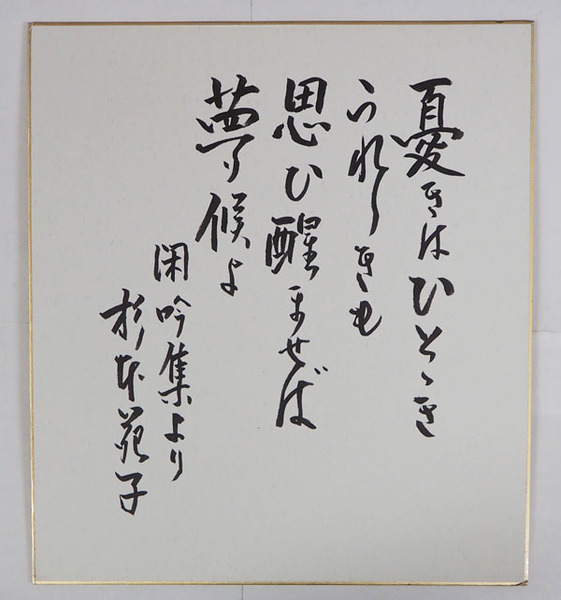 憂きはひとゝき
うれしきも
思ひ醒ませば
夢候よ
閑吟集より
杉本苑子